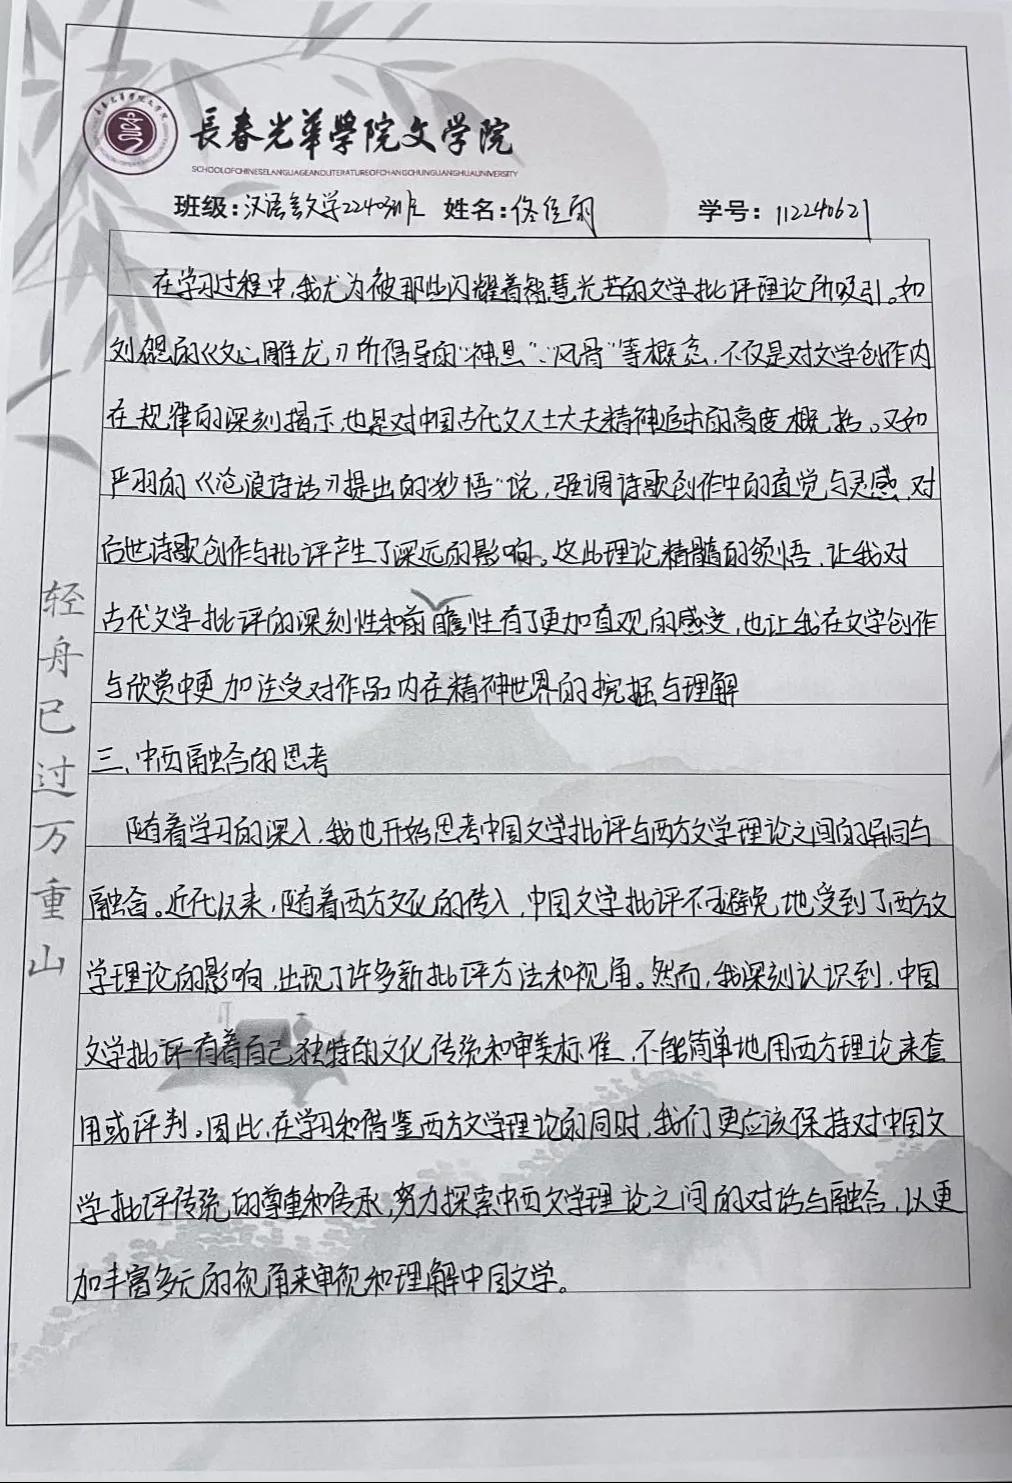 長春光華學院文学院
SCHOOLOFCHINESELANGUAGEANDLITERATUREOFCHANGCHUNGUANGHUAUNIVERSITY
班级:汉语言文学22403班 姓名:佟佳雨 学号:11240621
在学习过程中,我尤为被那些闪耀着智慧光芒的文学批评理论所吸引。如
刘勰的《文心雕龙》所倡导的“神思”、“风骨”等概念,不仅是对文学创作内
在规律的深刻揭示,也是对中国古代文人士大夫精神追求的高度概括。又如
严羽的《沧浪诗话》提出的“妙悟”说,强调诗歌创作中的直觉与灵感,对
后世诗歌创作与批评产生了深远的影响。这些理论精髓的领悟,让我对
古代文学批评的深刻性和前瞻性有了更加直观的感受,也让我在文学创作
与欣赏中更加注受对作品内在精神世界的挖掘与理解
三、中西融合的思考
随着学习的深入,我也开始思考中国文学批评与西方文学理论之间的异同与
融合。近代以来,随着西方文化的传入,中国文学批评不可避免地受到了西方文
学理论的影响,出现了许多新批评方法和视角。然而,我深刻认识到,中国
文学批评有着自己独特的文化传统和审美标准,不能简单地用西方理论来套
用或评判。因此,在学习和借鉴西方文学理论的同时,我们更应该保持对中国文
学批评传统的尊重和传承,努力探索中西文学理论之间的对话与融合,以更
加丰富多元的视角来审视和理解中国文学。
轻舟已过万重山